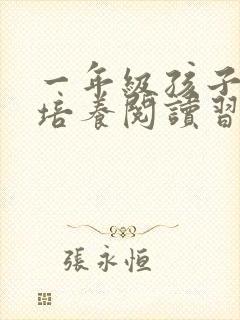 一年級孩子
培養閱讀習
張永恒